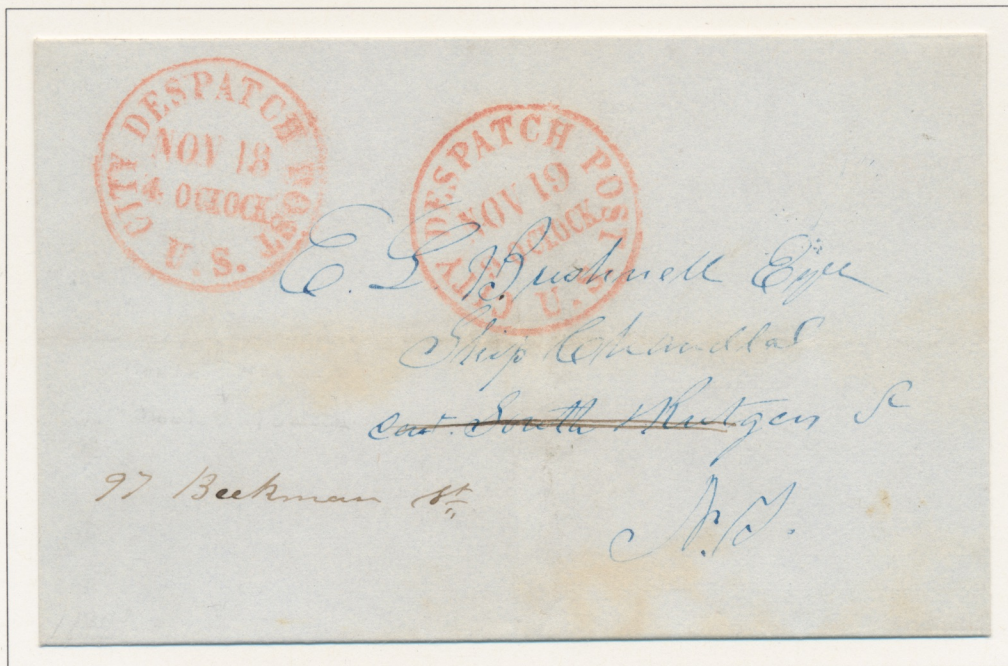 CITY DESPATCH POST
NOV 18
4 O'CLOCK
U.S.
CITY DESPATCH POST
NOV 19
O'CLOCK
U.S.
E. L. Bushnell Esqr
Ship Chandler
cor. South & Rutgers St
N.Y.
97 Beekman St.